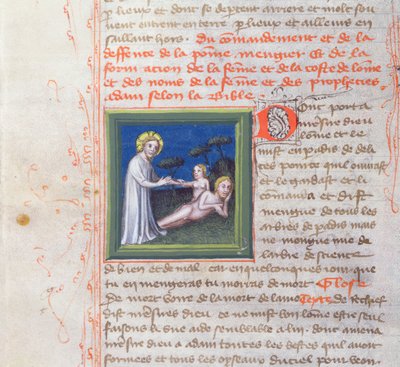 lieux et dont se deptent arriere et molt sou
uent entrent en terre p lieux et ailleurs en
saillant hors. Du comandement et de la
deffence de la pome mengier Et de la
formacion de la feme et de la coste de lome
et des noms de la feme et des prophecies
adam selon la Bible.
Donc porta
nresire dieu
lome et le
mist en padis de deli
ces pour ce quil ouurast
et le gardast et li
comanda et dist
mengue de tous les
arbres de padis mais
ne mengue mie de
larbre de science
de bien et de mal. car en quelconques iour que
tu en mengeras tu morras de mort. Glose
de mort cest de la mort de lame Texte de rechief
dist nresires dieu ce nest bon lome est seul
faisons li une aide semblable a lui. donc amena
nresire dieu a adam toutes les bestes quil auoit
formees et tous les oyseaux du ciel pour veou